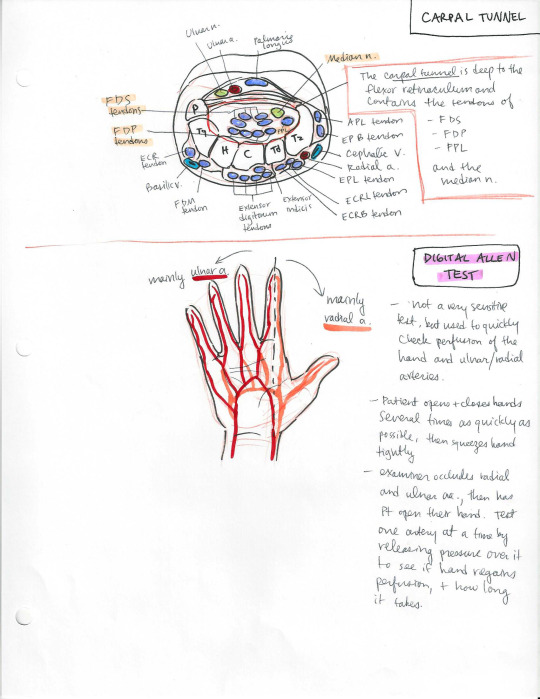 CARPAL TUNNEL
Ulnar n.
Ulnar a.
Palmaris
longus
Median n.
The carpal tunnel is deep to the
flexor retinaculum and
contains the tendons of
- FDS
- FDP
- FPL
and the
median n.
FDS
tendons
FDP
tendons
ECR
tendon
Basilic v.
FDM
tendon
Extensor
digitorum
tendons
Extensor
indicis
P
Tq
H
C
Td
Tz
FPL
APL tendon
EPB tendon
Cephalic v.
Radial a.
EPL tendon
ECRL tendon
ECRB tendon
DIGITAL ALLEN
TEST
mainly ulnar a.
mainly
radial a.
- not a very sensitive
test, but used to quickly
check perfusion of the
hand and ulnar/radial
arteries.
- Patient opens + closes hands
several times as quickly as
possible, then squeezes hand
tightly
- examiner occludes radial
and ulnar aa., then has
pt open their hand. Test
one artery at a time by
releasing pressure over it
to see if hand regains
perfusion, + how long
it takes.